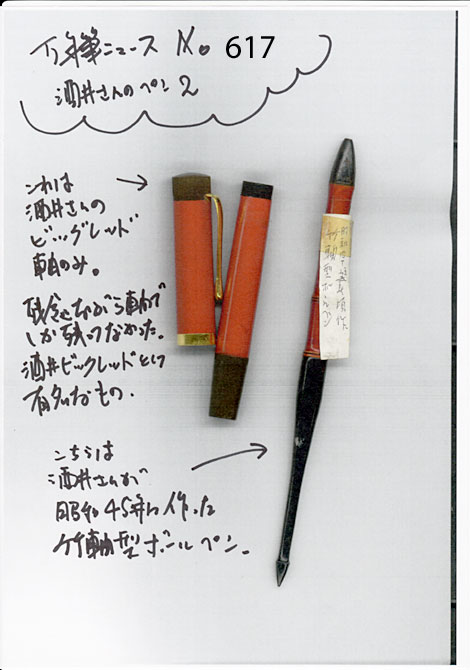 万年筆ニュース No. 617
酒井さんのペン 2
これは
酒井さんの
ビッグレッド
軸のみ。
残念ながら軸で
しか残ってなかった。
酒井ビックレッドとして
有名なもの.
こちらは
酒井さんが
昭和45年に作った
竹軸型ボールペン。
竹軸型ボールペン